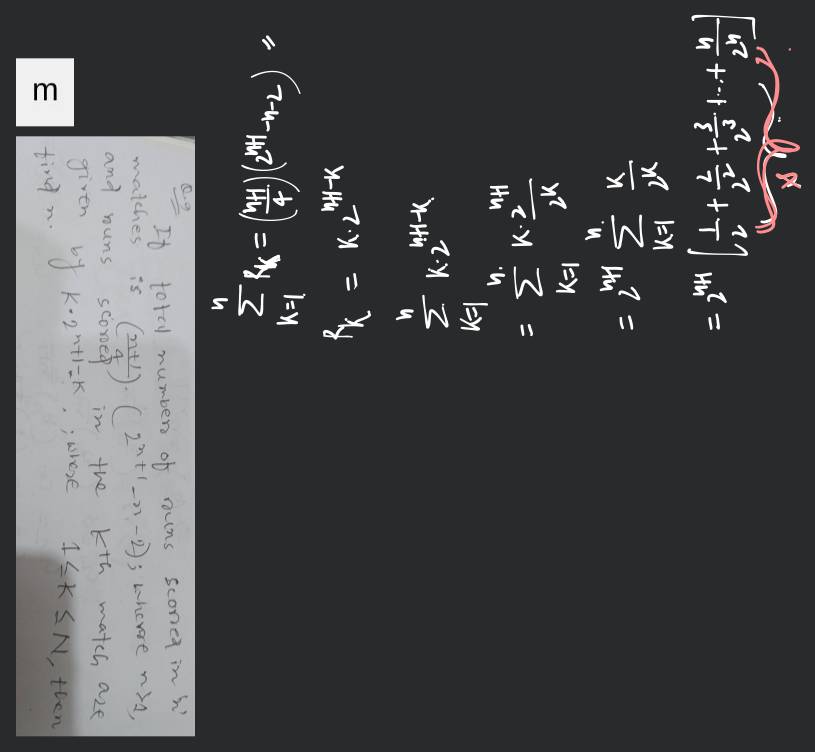 m
Q.9
If total numbers of runs scored in 'n'
matches is (n+1/4). (2^n+1 -n-2); where n>1,
and runs scored in the kth match are
given by K.2^n+1-K ; where 1≤K≤N, then
find n.
n
∑ R_K = (n+1/4)(2^n+1-n-2) =
K=1
R_K = K.2^n+1-K
n
∑ K.2^n+1-K
K=1
= n ∑ K=1 K.2^n+1/2^K
= 2^n+1 n ∑ K=1 K/2^K
= 2^n+1 [1/2 + 2/2^2 + 3/2^3 + ... + n/2^n]